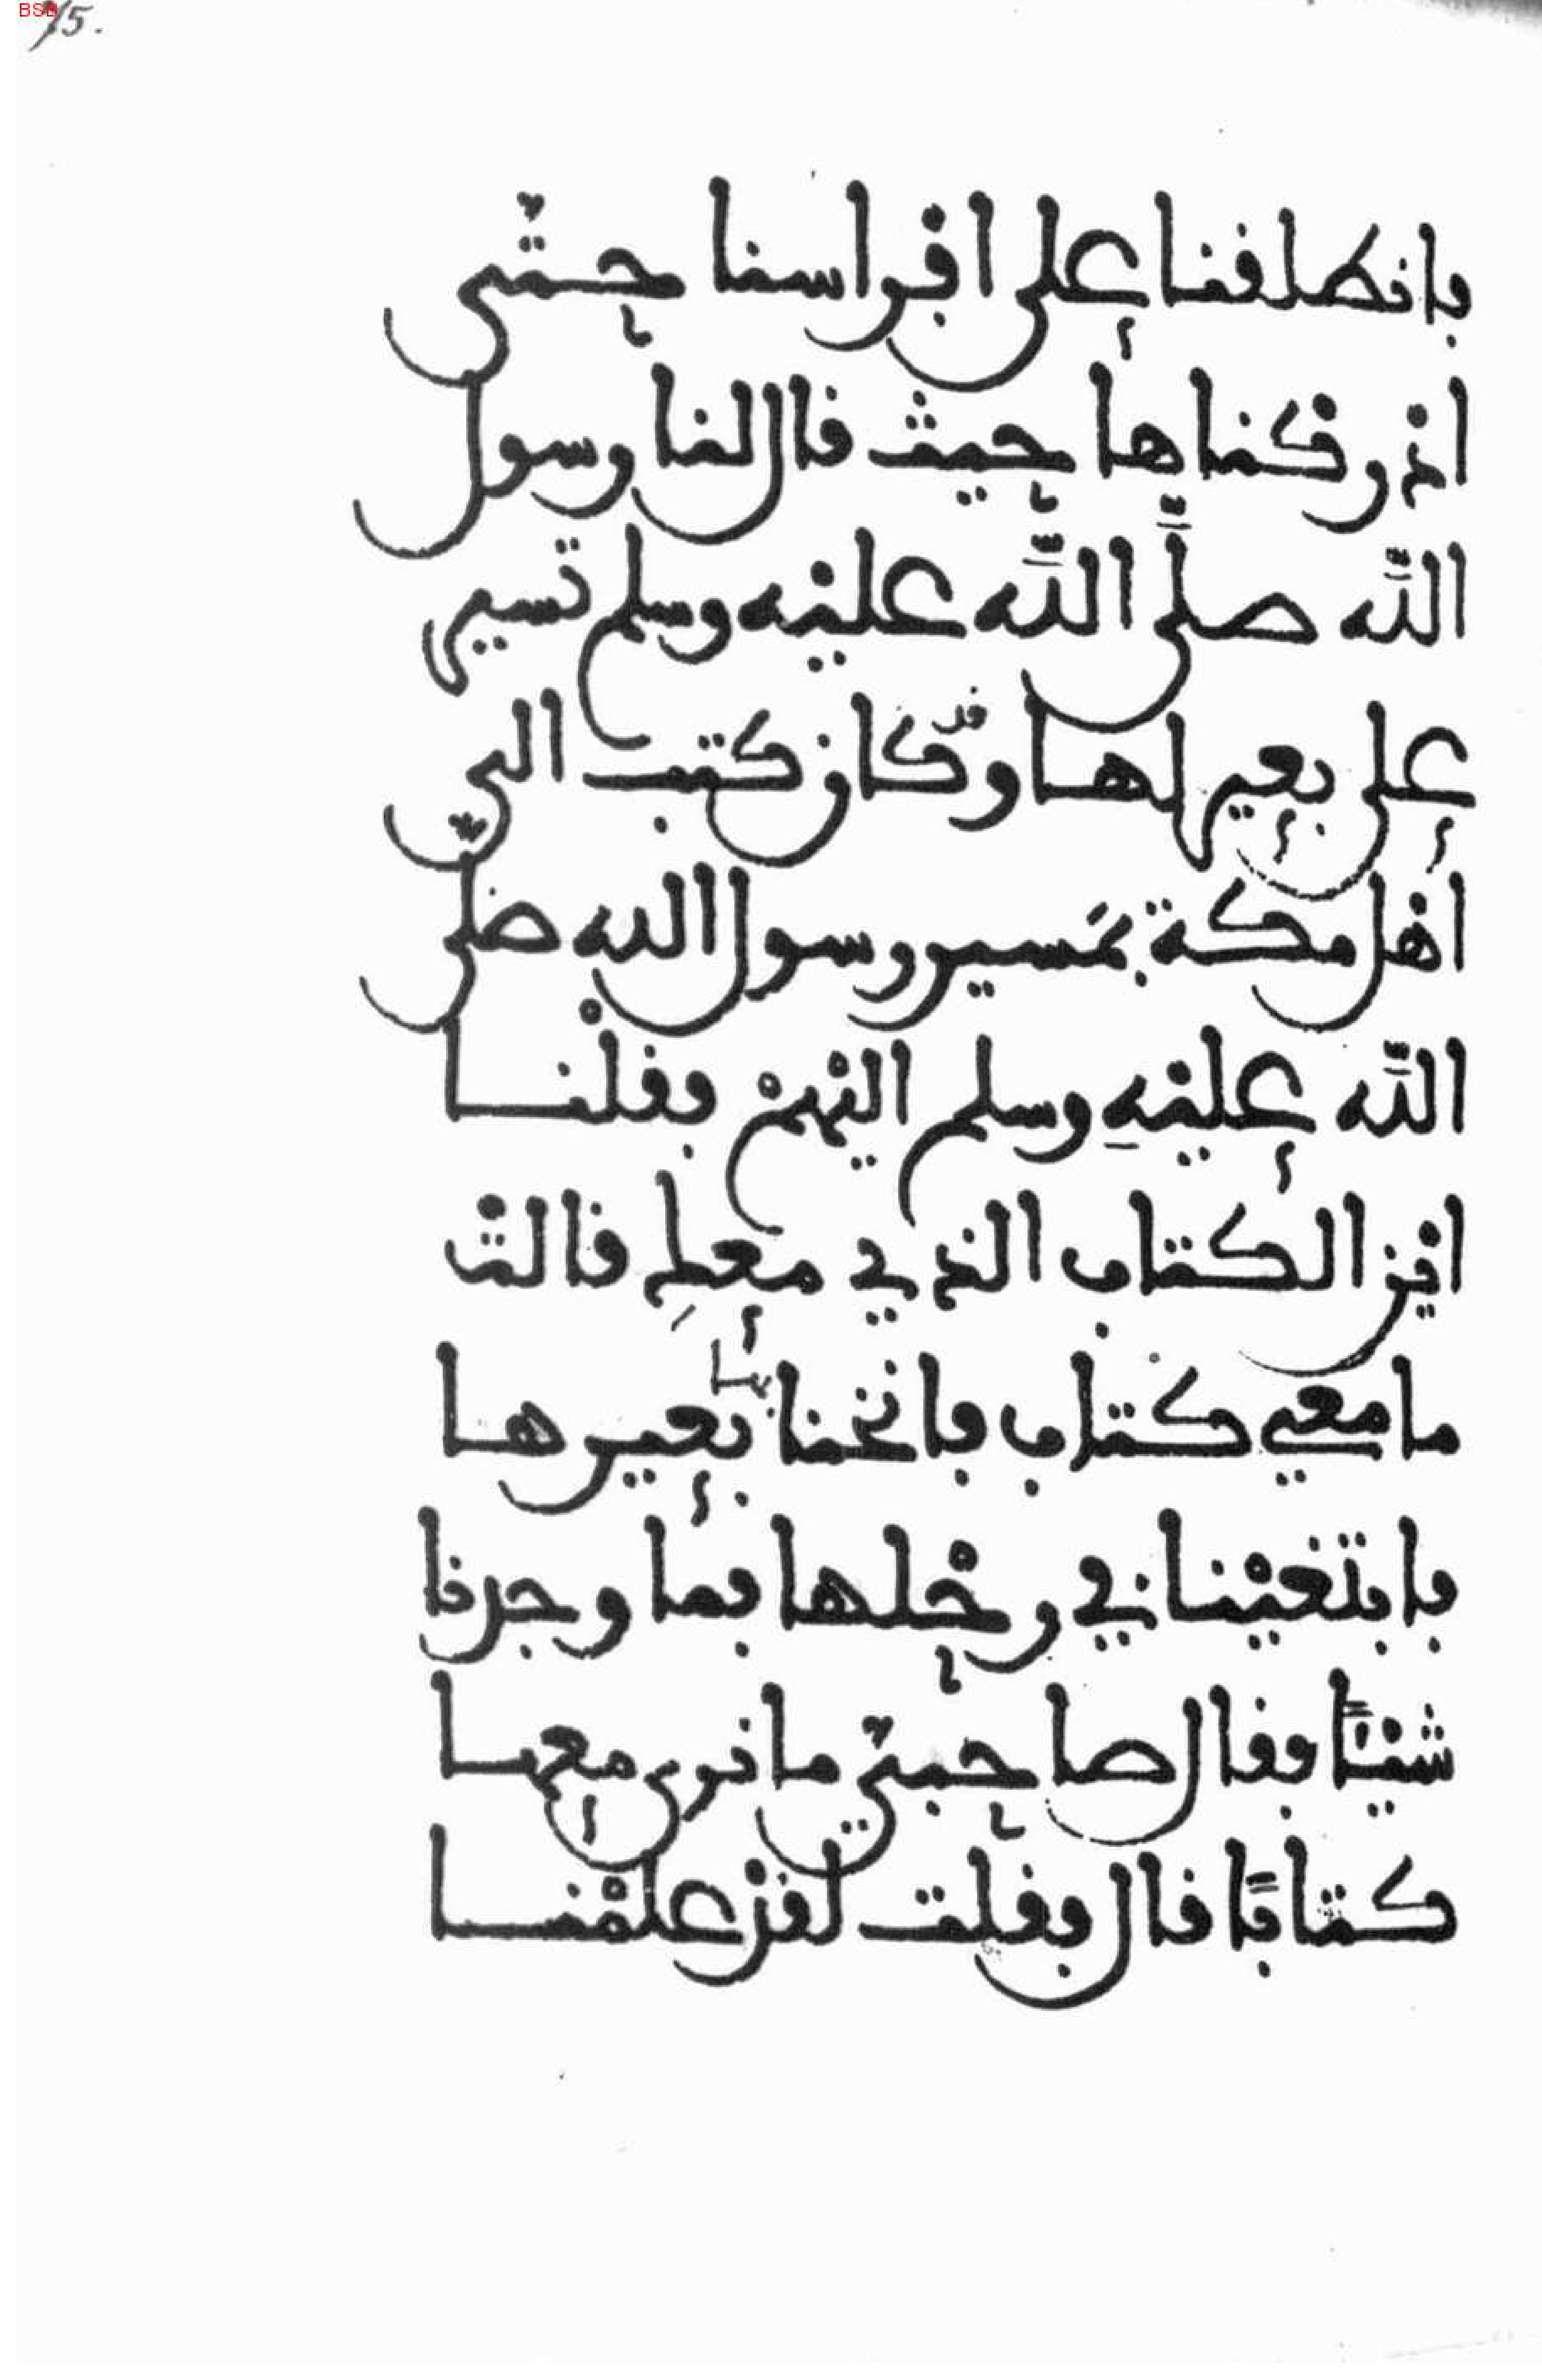 75.
فانطلقنا على افراسنا حتّى
ادْركناها حيث قال لنا رسول
اللّه صلّى اللّه عليْه وسلم تسير
على بعير لها وقد كان كتب الى
اهْل مكة بمَسير رسول الله صلّى
اللّه عليْهِ وسلم اليْهمْ فقلْنا
ايْن الكتاب الذي معكِ قالتْ
ما معي كتاب فانخنا بها بعيرها
فابتغيْنا في رحْلها فما وجدنا
شيْئًا فقال صاحبيّ ما نرى معها
كتابًا قال فقلت لقدْ علمْنا